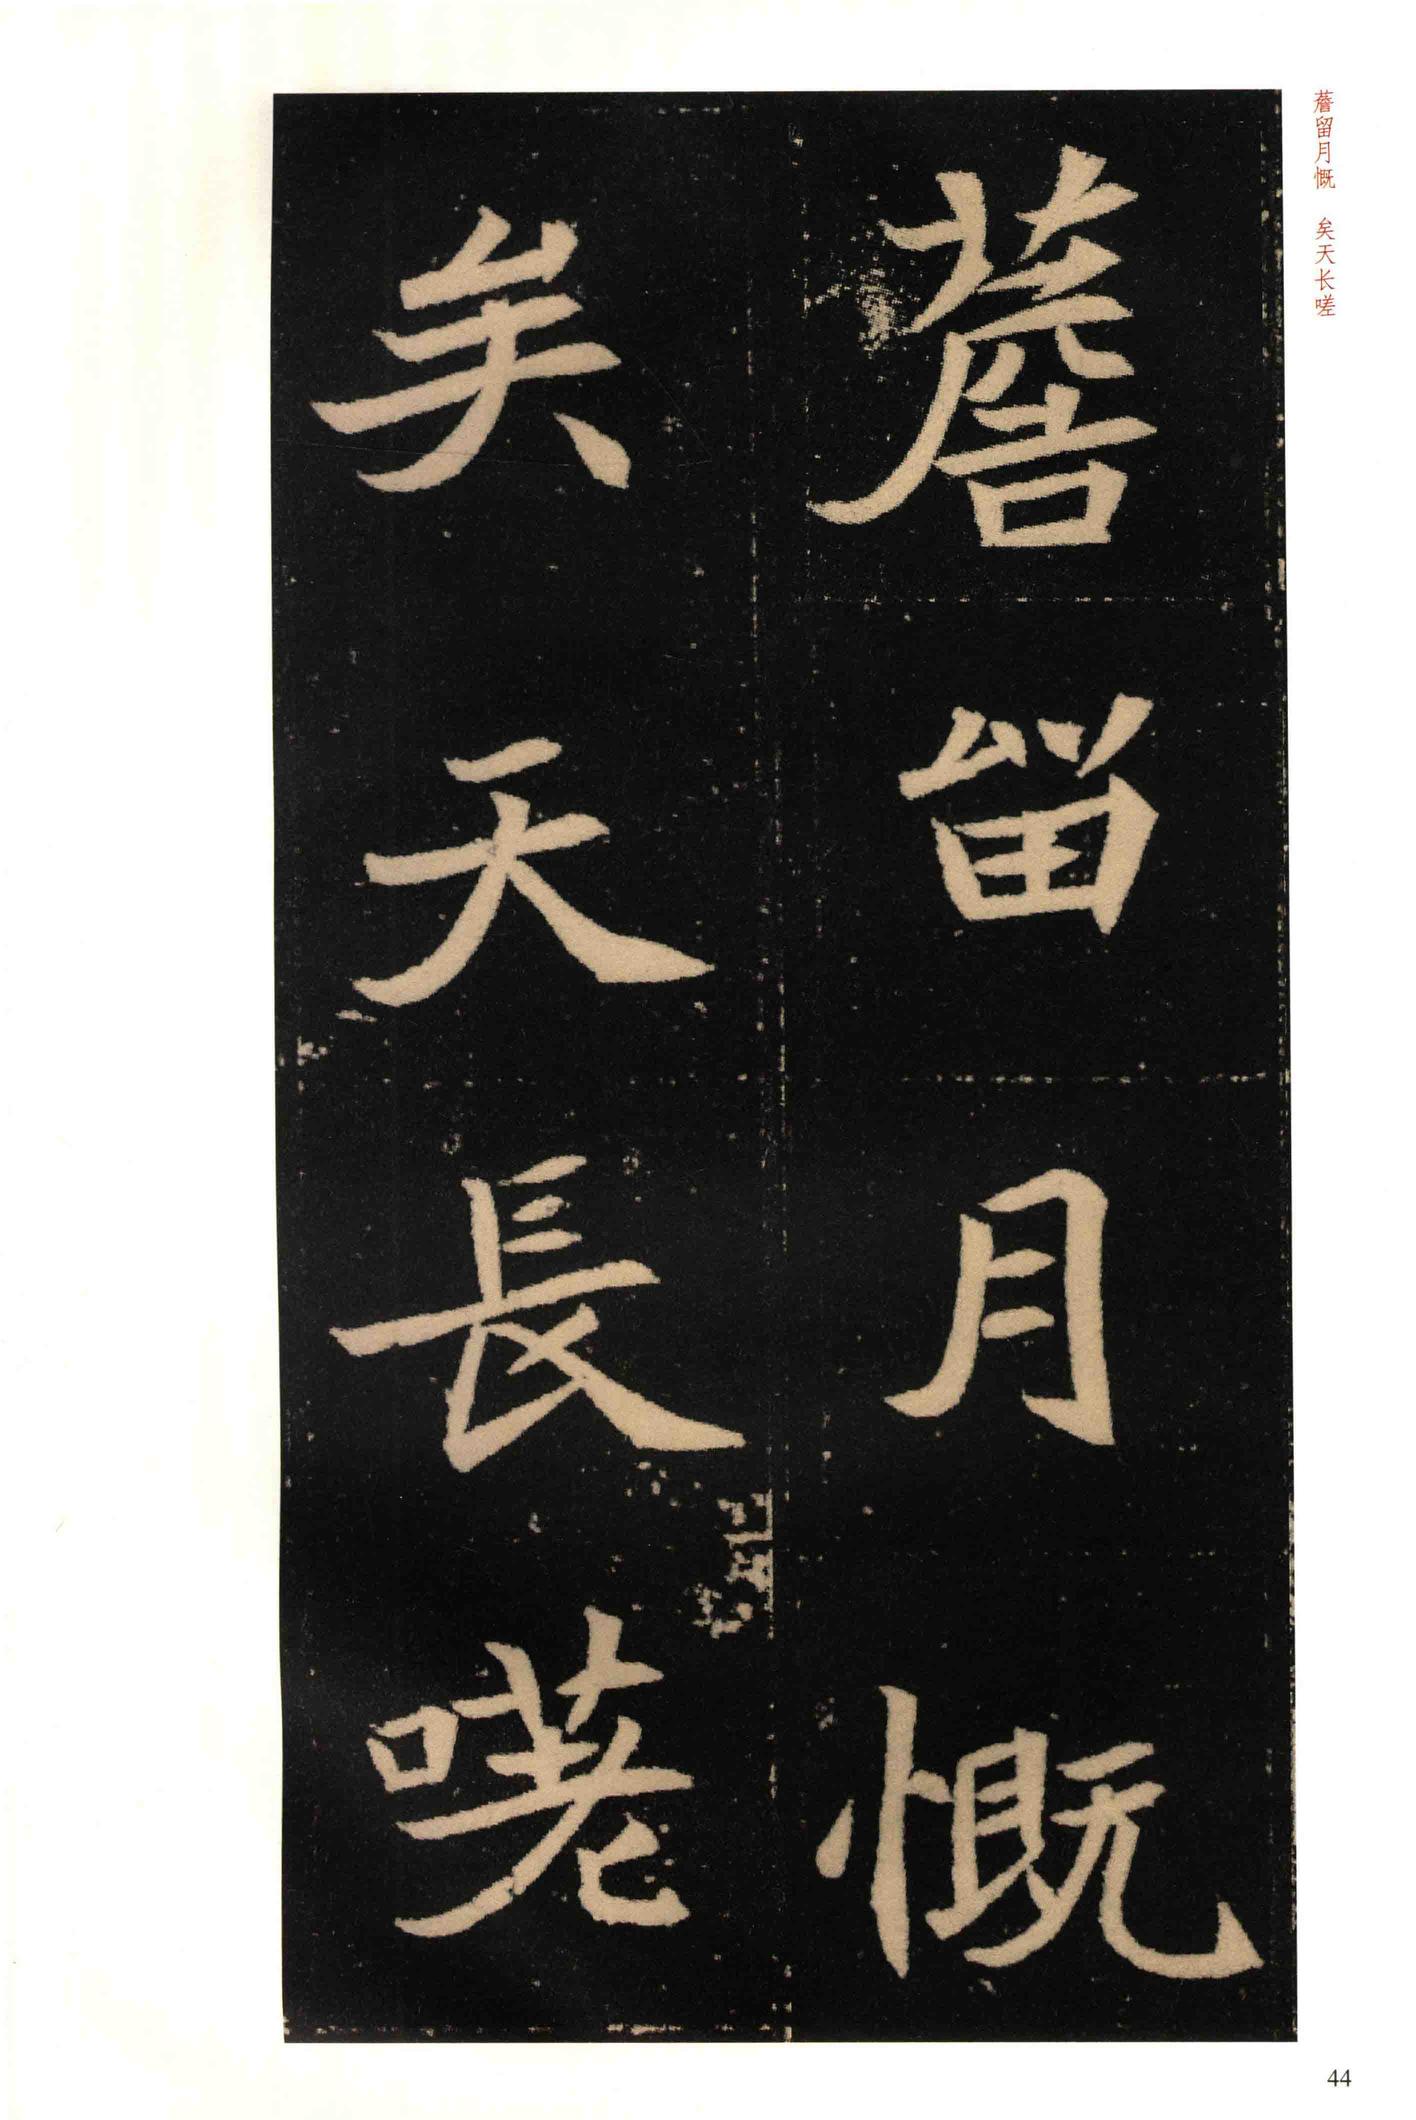 薝留月慨
矣天長嗟
薝留月慨 矣天长嗟
44